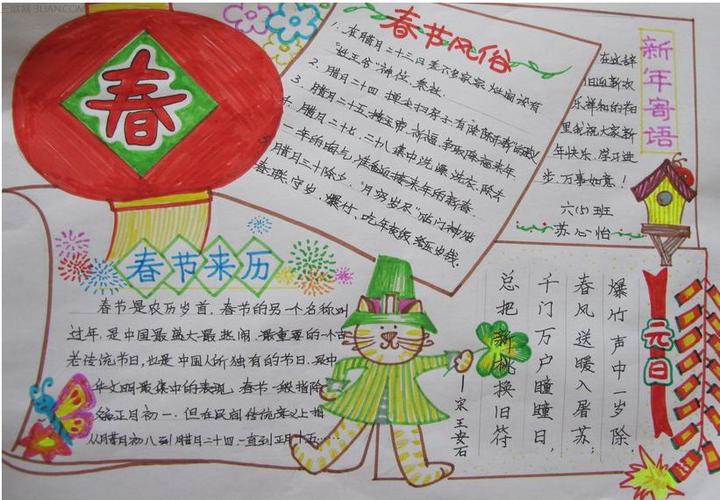 3LIAN.COM
春
春节风俗
1、在腊月二十三四差不多家家灶面设有
神位
2、腊月二十四 掸尘扫房子有除陈布新的
3、腊月二十五接玉帝、祈福、争取降福来年
腊月二十七、二十八集中洗澡、洗衣、除去
一年的晦气、准备迎接来年的新春
腊月三十除夕、"月穷岁尽"贴门神贴
春联、守岁、爆竹、吃年夜饭、压岁钱.
新年寄语
在这辞
旧迎新欢
乐祥和的
里我祝大家新
年快乐.学习进
步.万事如意!
六(5)班
苏心怡
春节来历
春节是农历岁首、春节的另一个名称叫
过年、是中国最盛大最热闹、最重要的一个古
老传统节日、也是中国人所独有的节日、是中
华文明最集中的表现、春节一般指除
正月初一.但在民间传统意义上
从腊月初八到腊月二十四一直到正月十五……
元日
爆竹声中一岁除，
春风送暖入屠苏；
千门万户曈曈日，
总把新桃换旧符
——宋王安石